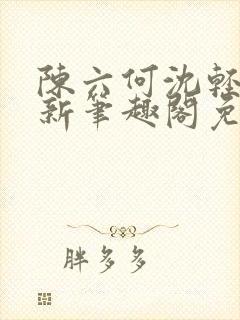 陳六何沈輕
新筆趣閣免
胖多多